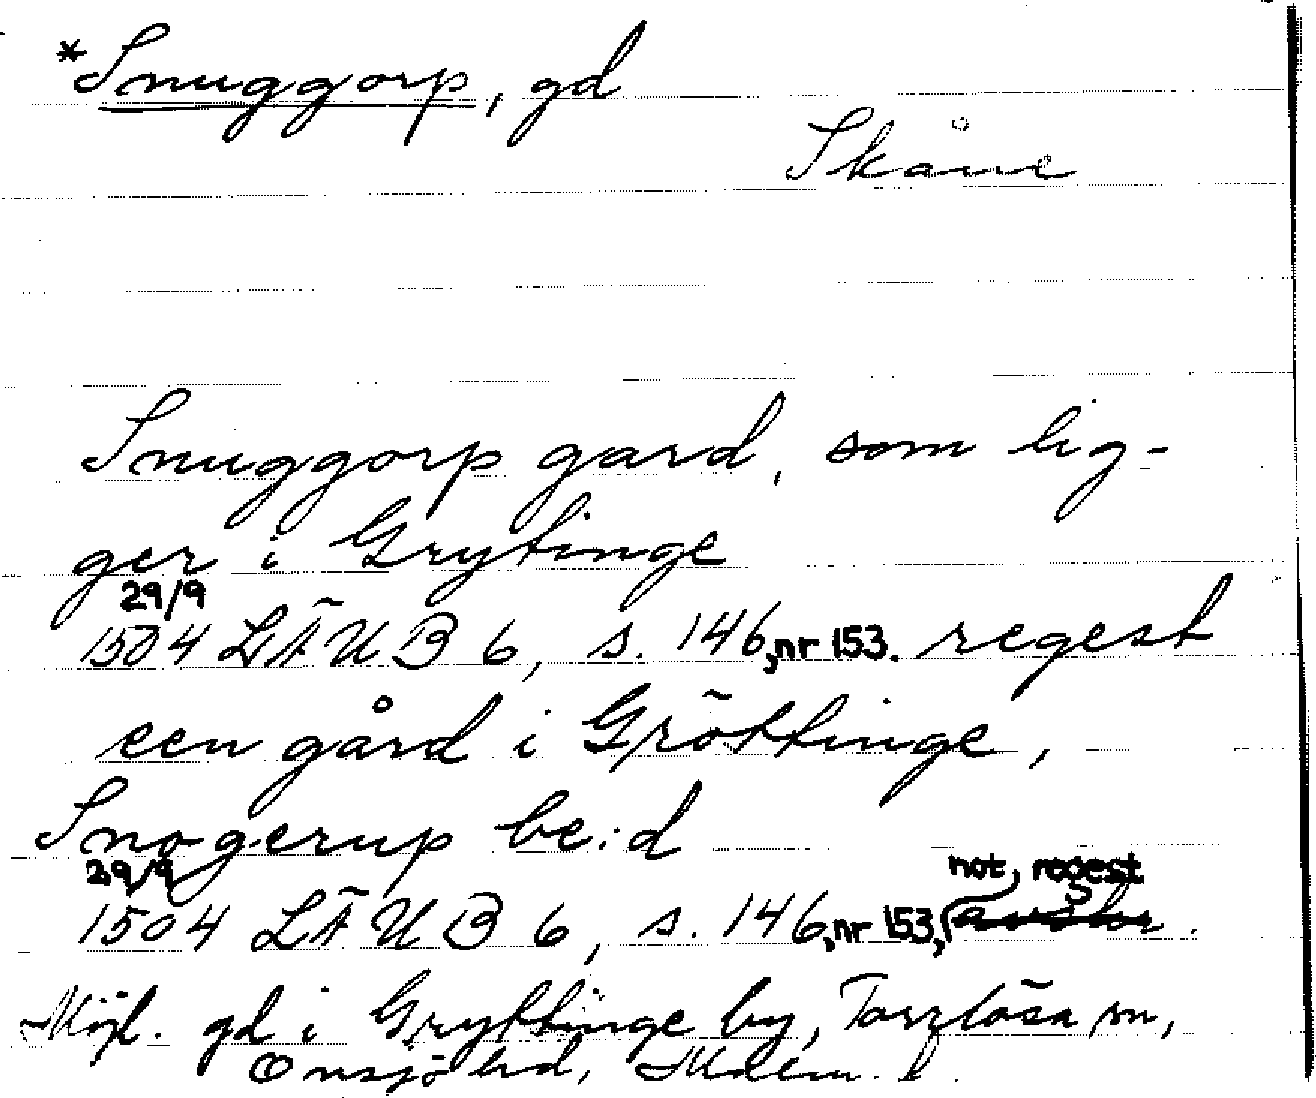 *Snuggorp, gd
Skåne
Snuggorp gard, som lig-
ger i Grytinge
29/9
1504 LÄUB 6, s. 146, nr 153. regest
een gård i Gröttinge,
Snogerup be:d
29/9 not, regest
1504 LÄUB 6, s. 146, nr 153,
Möjl. gd i Gryttinge by, Torrlösa sn,
Onsjö hd, Malm. l.